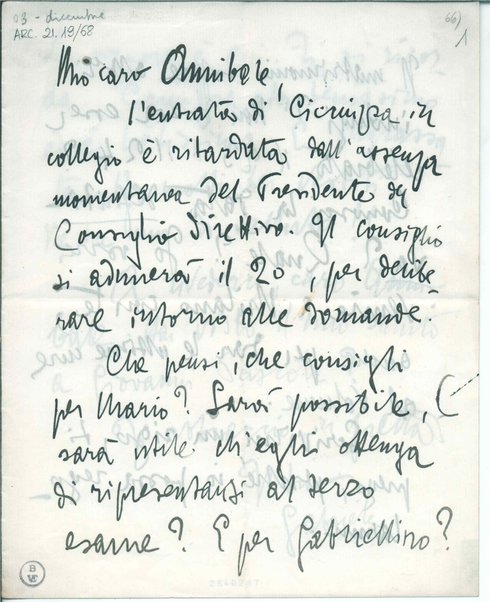 03 - dicembre
ARC. 21.19/68
66)
1
Mio caro Annibale,
l'entrata di Cicciuzza in
collegio è ritardata dall'assenza
momentanea del Presidente del
Consiglio direttivo. Il consiglio
si adunerà il 20, per delibe-
rare intorno alle domande.
Che pensi, che consigli
per Mario? Sarà possibile,
sarà utile ch'egli ottenga
di ripresentarsi al terzo
esame? E per Gabriellino?